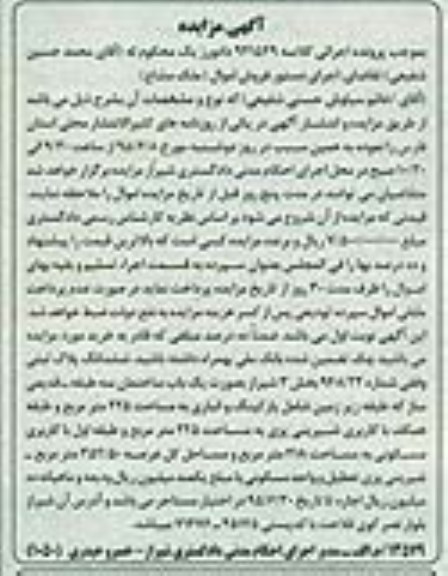 آگهی مزایده
بموجب پرونده اجرائی کلاسه دایورز یک محکوم له (آقای محمد حسین
شفیعی) تقاضای اجرای دستور فروش اموال (ملک مشاع)
(آقای /خانم سیاوش حسنی شفیعی) که نوع و مشخصات آن بشرح ذیل می باشد
از طریق مزایده و انتشار آگهی در یکی از روزنامه های کثیرالانتشار محلی استان
فارس را نموده به همین سبب در روز دوشنبه مورخ از ساعت ۹/۳۰ الی
۱۰/۳۰ صبح در محل اجرای احکام مدنی دادگستری شیراز مزایده برگزار خواهد شد
متقاضیان می توانند در مدت پنج روز قبل از تاریخ مزایده اموال را ملاحظه نمایند.
قیمتی که مزایده از آن شروع می شود بر اساس نظریه کارشناس رسمی دادگستری
مبلغ ریال و برنده مزایده کسی است که بالاترین قیمت را پیشنهاد
و ده درصد بها را فی المجلس بعنوان سپرده به قسمت اجراء تسلیم و بقیه بهای
اموال را ظرف مدت ۳۰ روز از تاریخ مزایده پرداخت نماید در صورت عدم پرداخت
مابقی اموال سپرده تودیعی پس از کسر هزینه مزایده به نفع دولت ضبط خواهد شد.
این آگهی نوبت اول می باشد. ضمناً ده درصد مبلغی که قادر به خرید مورد مزایده
می باشید چک تضمین شده بانک ملی بهمراه داشته باشید. ششدانگ پلاک ثبتی
وقفی شماره بخش ۳ شیراز بصورت یک باب ساختمان سه طبقه ـ قدیمی
ساز که طبقه زیر زمین شامل پارکینگ و انباری به مساحت ۲۲۵ متر مربع و طبقه
همکف با کاربری شیرینی پزی به مساحت ۲۲۵ متر مربع و طبقه اول با کاربری
مسکونی به مساحت متر مربع و مساحل کل عرصه متر مربع ـ
شیرینی پزی تعطیل و واحد مسکونی با مبلغ یکصد میلیون ریال ودیعه و ماهیانه ده
میلیون ریال اجاره تا تاریخ در اختیار مستاجر می باشد و آدرس آن شیراز
بلوار نصر کوی با کدپستی میباشد.
مدیر اجرای احکام مدنی دادگستری شیراز - خسرو حیدری